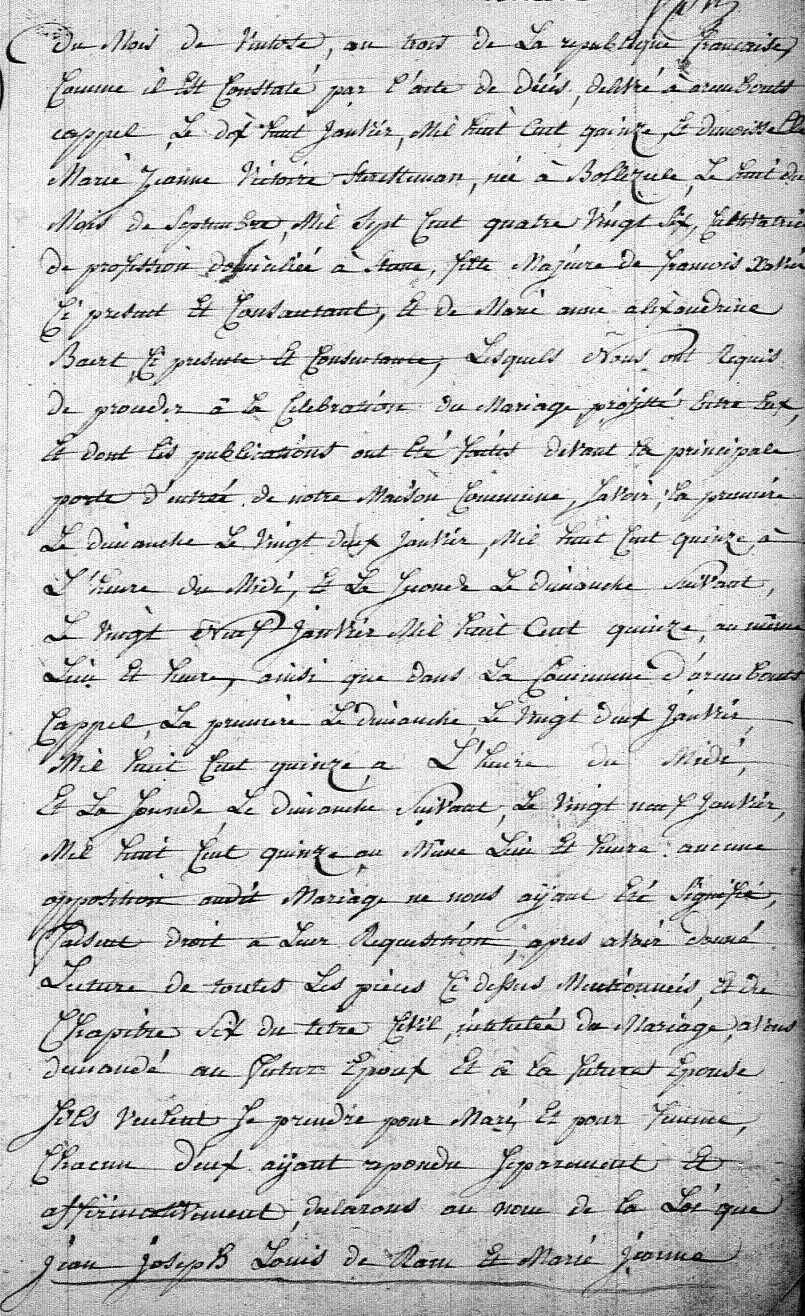 du Mois de Ventose, an trois de La republique francaise,
Comme il Est Constaté par l'acte de décés, delivré à armbouts
cappel, Le dix huit Janvier, Mil huit Cent quinze, Et demoiselle
Marie Jeanne Victoire, née à Bollezeele, Le huit du
Mois de Septembre, Mil Sept Cent quatre Vingt Six, Cultivatrice
de profession domiciliée à, fille Majeure de francois Xavier
Ci present Et Consentant, Et de Marie anne alexandrine
Baert, Ci presente Et Consentante, Lesquels Nous ont Requis
de proceder à la Celebration du Mariage projetté Entre Eux,
Et dont les publications ont Eté faites devant la principale
porte d'entrée de notre Maison Commune, Savoir, la premiere
Le dimanche Le Vingt deux Janvier, Mil huit Cent quinze, à
L'heure du Midi, Et La Seconde Le dimanche Suivant,
Le Vingt Neuf Janvier Mil huit Cent quinze, au même
Lieu Et heure, ainsi que dans La Commune d'armbouts
Cappel, La premiere Le dimanche, Le Vingt deux Janvier
Mil huit Cent quinze, a L'heure du Midi,
Et La Seconde Le dimanche Suivant, Le Vingt neuf Janvier,
Mil huit Cent quinze au Même Lieu Et heure : aucune
opposition audit Mariage ne nous aÿant Eté Signifié,
Faisant droit a Leur Requisition, apres avoir donné
Lecture de toutes Les pièces Ci dessus Mentionnées, Et de
Chapitre Six du titre Civil, intitulée du Mariage, avons
demandé au futur Epoux Et à la future Epouse
S'ils Veulent Se prendre pour Mari Et pour femme,
Chacun d'eux aÿant repondu Separement Et
affirmativement, declarons au nom de la Loi que
Jean Joseph Louis de Ram Et Marie Jeanne